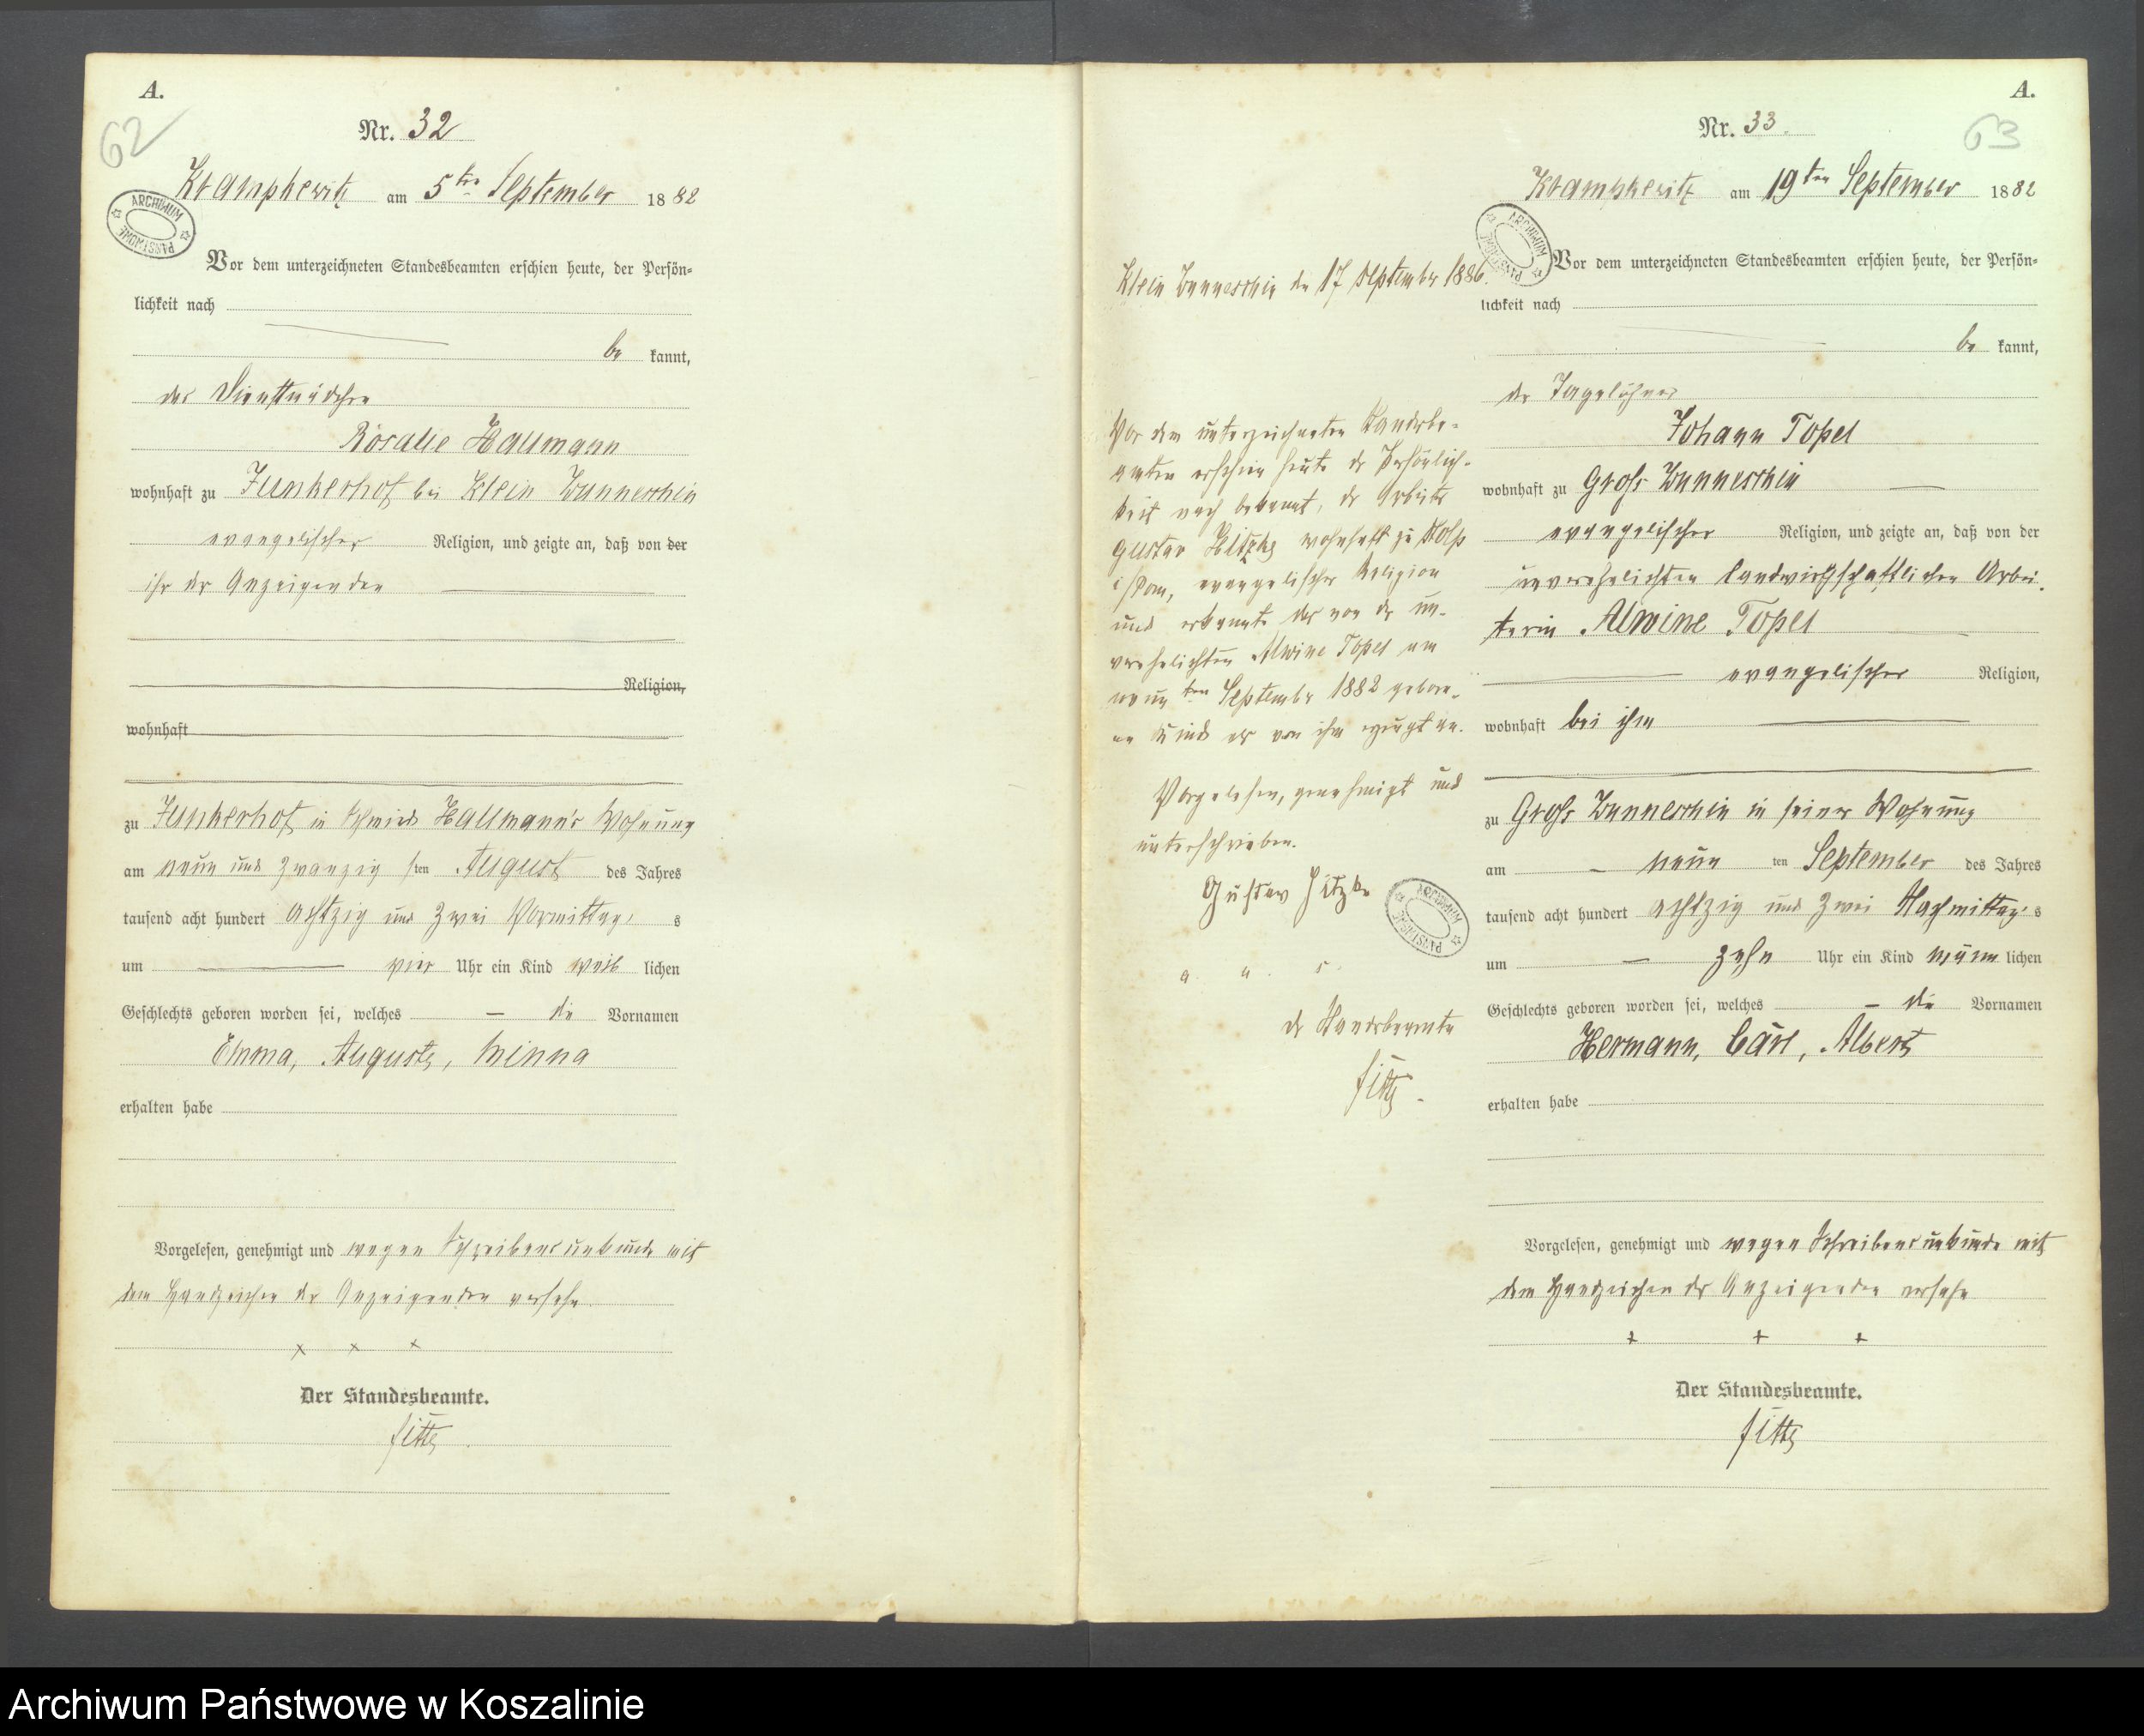 A.
62
Nr. 32
Krampkewitz am 5ten September 1882
ARCHIWUM PAŃSTWOWE
Vor dem unterzeichneten Standesbeamten erschien heute, der Persön-
lichkeit nach
be kannt,
das Dienstmädchen
Rosalie Hallmann
wohnhaft zu Junkerhof bei Klein Wunneschin
evangelischer Religion, und zeigte an, daß von der
ihr der Anzeigenden
Religion,
wohnhaft
zu Junkerhof in Schmied Hallmann's Wohnung
am neun und zwanzig sten August des Jahres
tausend acht hundert achtzig und zwei Vormittag s
um vier Uhr ein Kind weib lichen
Geschlechts geboren worden sei, welches die Vornamen
Emma, Auguste, Minna
erhalten habe
Vorgelesen, genehmigt und wegen Schreibensunkunde mit
dem Handzeichen der Anzeigenden versehn
x x x
Der Standesbeamte.
A.
63
Nr. 33.
Krampkewitz am 19ten September 1882
ARCHIWUM PAŃSTWOWE
Vor dem unterzeichneten Standesbeamten erschien heute, der Persön-
lichkeit nach
be kannt,
der Tagelöhner
Johann Topel
wohnhaft zu Groß Wunneschin
evangelischer Religion, und zeigte an, daß von der
unverehelichten landwirthschaftlichen Arbei-
terin Alwine Topel
evangelischer Religion,
wohnhaft bei ihm
zu Groß Wunneschin in seiner Wohnung
am neun ten September des Jahres
tausend acht hundert achtzig und zwei Nachmittag s
um zehn Uhr ein Kind männ lichen
Geschlechts geboren worden sei, welches die Vornamen
Hermann, Carl, Albert
erhalten habe
Vorgelesen, genehmigt und wegen Schreibensunkunde mit
dem Handzeichen des Anzeigenden versehn
+ + +
Der Standesbeamte.
Klein Wunneschin den 17 September 1886.
Vor dem unterzeichneten Standesbe-
amten erschien heute der Persönlich-
keit nach bekannt, der Arbeiter
Gustav wohnhaft zu Stolp
i/Pom, evangelischer Religion
und erkannte das von der un-
verehelichten Alwine Topel am
neunten September 1882 gebore-
ne Kind als von ihm erzeugt an.
Vorgelesen, genehmigt und
unterschrieben.
Gustav
ARCHIWUM PAŃSTWOWE
der Standesbeamte
Archiwum Państwowe w Koszalinie